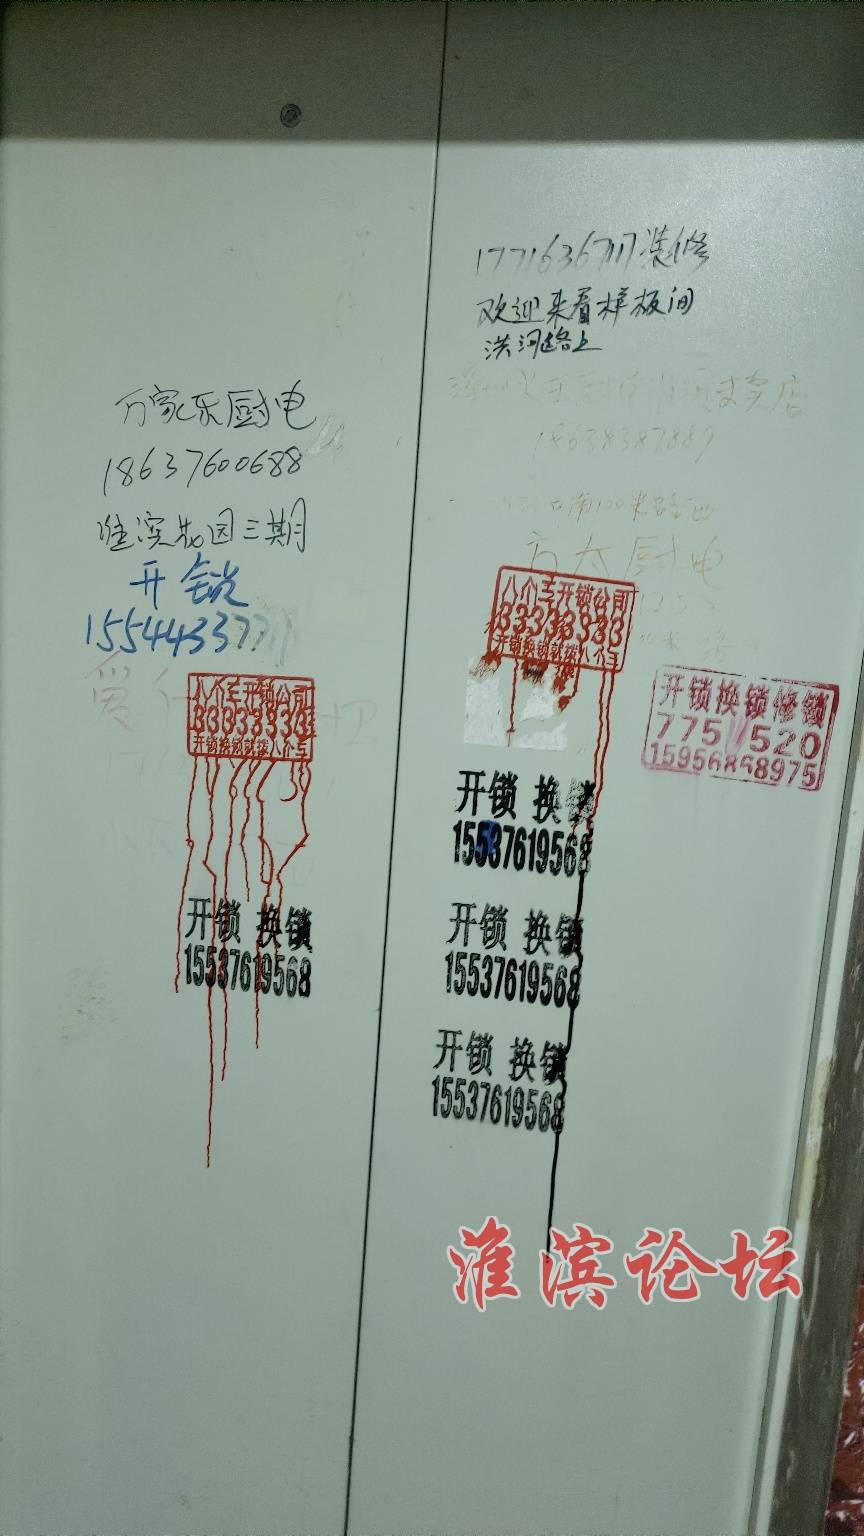 万家乐厨电
18637600688
淮滨花园三期
开锁
155444337
八个三开锁公司
33333333
开锁换锁就拨八个三
开锁 换锁
15537619568
17716367117装修
欢迎来看样板间
洪河路上
卖店
18638387889
南100米路西
方太厨电
八个三开锁公司
33333333
开锁换锁就拨八个三
开锁换锁修锁
775 520
15956868975
开锁 换锁
15537619568
开锁 换锁
15537619568
开锁 换锁
15537619568
淮滨论坛